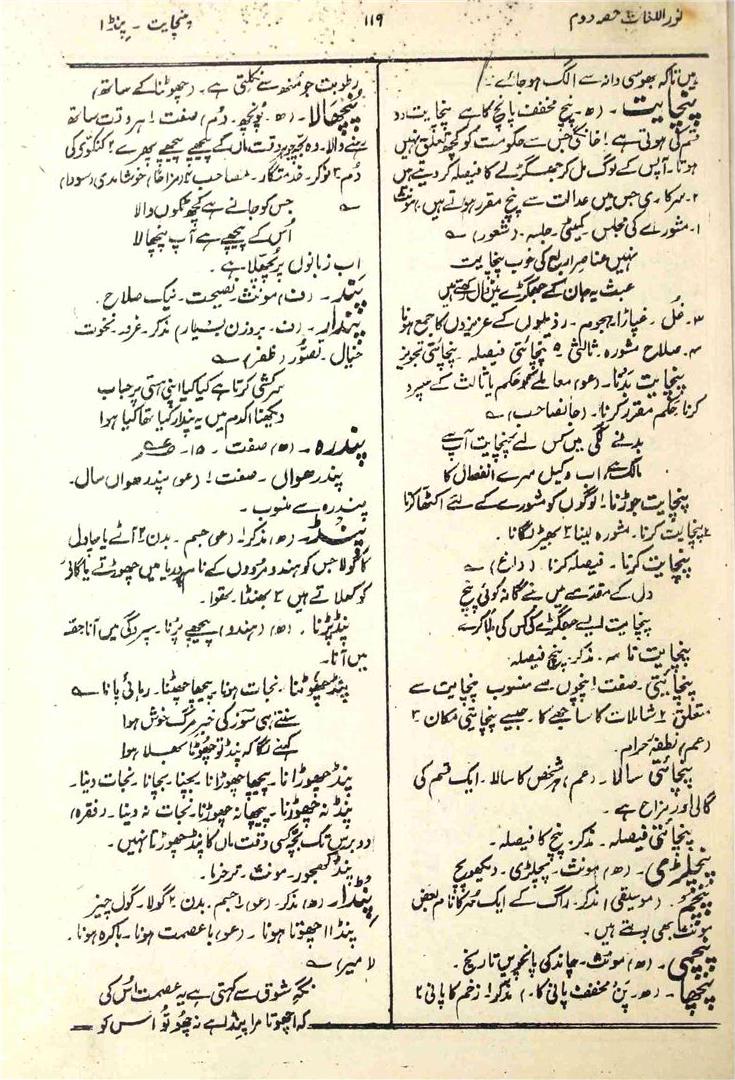 نور اللغات حصہ دوم
۱۱۹
پنچایت ۔ پنڈا
ہیں تاکہ بھوسی دانہ سے الگ ہو جائے۔
پنچایت ۔ (ھ۔ پنچ مخفف پانچ کا ہے پنچایت دو
قسم کی ہوتی ہے ۱ خانگی جس سے حکومت کو کچھ تعلق نہیں
ہوتا۔ آپس کے لوگ مل کر جھگڑے کا فیصلہ کر دیتے ہیں
۲۔ سرکاری جس میں عدالت سے پنچ مقرر ہوتے ہیں) مونث
۱۔ مشورے کی مجلس ۔ کمیٹی ۔ جلسہ ۔ (شعور) ؎
نہیں عناصر اربع کی خوب پنچایت
عبث یہ جان کے جھگڑے میں ڈال رکھتے ہیں
۳۔ غُل ۔ غپاڑا ۔ ہجوم ۔ رذیلوں کے عزیزوں کا جمع ہونا
۴۔ صلاح مشورہ ۔ ثالثی ۵ پنچائتی فیصلہ ۔ پنچائتی تجویز
پنچایت بدنا ۔ (عو) معاملے کو حکم یا ثالث کے سپرد
کرنا حکم مقرر کرنا ۔ (جانصاحب) ؎
بدنے لگی ہیں کس لئے پنچایت آپ سے
مالک ہے اب وکیل مرے انفصال کا
پنچایت جوڑنا ۱ لوگوں کو مشورے کے لئے اکٹھا کرنا
۲ پنچایت کرنا ۔ مشورہ لینا ۳ بھیڑ لگانا ۔
پنچایت کرنا ۔ فیصلہ کرنا ۔ (داغ) ؎
دل کے مقدمے میں نے گانہ کوئی پنچ
پنچایت ایسے جھگڑے کی کس کی بلا کرے
پنچایت نامہ ۔ مذکر ۔ پنچ فیصلہ
پنچایتی ۔ صفت ۱ پنچوں سے منسوب پنچایت سے
متعلق ۲ شاملات کا ساجھے کا ۔ جیسے پنچایتی مکان ۳
(عم) نطفۂ حرام ۔
پنچائتی سالا ۔ (عم) ہر شخص کا سالا ۔ ایک قسم کی
گالی اور مزاح ہے ۔
پنچائتی فیصلہ ۔ مذکر ۔ پنچ کا فیصلہ ۔
پنچلڑی ۔ (ھ) مونث ۔ پچلڑی ۔ دیکھو پچ
پنچم ۔ (موسیقی) مذکر ۔ راگ کے ایک سُر کا نام بعض
مونث بھی بولتے ہیں ۔
پنچمی ۔ (ھ) مونث ۔ چاند کی پانچویں تاریخ ۔
پنچھا ۔ (ھ ۔ پن مخفف پانی کا) مذکر ۱ زخم کا پانی ۲
رطوبت جو منھ سے نکلتی ہے ۔ (چھوٹنا کے ساتھ)
پُنچھالا ۔ (ھ ۔ پونچھ ۔ دُم) صفت ۱ ہر وقت ساتھ
رہنے والا ۔ وہ بچہ جو ہر وقت ماں کے پیچھے پیچھے پھرے ۲ کنکوّے کی
دُم ۳ نوکر ۔ خدمتگار ۔ مصاحب ۴ (مزاحاً) خوشامدی (سودا)
؎ جس کو جانے ہے کچھ ٹکوں والا
اُس کے پیچھے ہے آپ پنچھالا
اب زبانوں پر پُچھلّا ہے ۔
پند ۔ (ف) مونث ۔ نصیحت ۔ نیک صلاح ۔
پندار ۔ (ف ۔ بروزن بسیار) مذکر ۔ غرور ۔ نخوت
خیال ۔ تصوّر (ظفر) ؎
سرکشی کرتا ہے کیا کیا اپنی ہستی پر حباب
دیکھنا اک دم میں یہ پندار کیا تھا کیا ہوا
پندرہ ۔ (ھ) صفت ۔ ۱۵ ۔
پندرھواں ۔ صفت ۱ (عو) پندرھواں سال ۔
پندرہ سے منسوب ۔
پنڈ ۔ (ھ) مذکر ۱ (عو) جسم ۔ بدن ۲ آٹے یا چاول
کا گولا جس کو ہندو مردوں کے نام پر دریا میں چھوڑتے یا گائے
کو کھلاتے ہیں ۳ بھنٹا ۔ لقوا ۔
پنڈ پڑنا ۔ (ھ) (ہندو) پیچھے پڑنا ۔ سپردگی میں آنا حصّہ
میں آنا ۔
پنڈ چھوٹنا ۔ نجات ہونا ۔ پیچھا چھٹنا ۔ رہائی پانا ؎
سنتے ہی سوز کی خبرِ مرگ خوش ہوا
کہنے لگا کہ پنڈ تو چھوٹا بھلا ہوا
پنڈ چھوڑانا ۔ پیچھا چھوڑانا ۔ بچنا ۔ بچانا ۔ نجات دینا ۔
پنڈ نہ چھوڑنا ۔ پیچھا نہ چھوڑنا ۔ نجات نہ دینا ۔ (فقرہ)
دو برس تک بچّہ کسی وقت ماں کا پنڈ چھوڑتا نہیں ۔
پنڈ کھجور ۔ مونث ۔ تر خرما ۔
پنڈا ۔ (ھ) مذکر ۔ (عو) ۱ جسم ۔ بدن ۲ گولا ۔ گول چیز
پنڈا اچھوتا ہونا ۔ (عو) باعصمت ہونا ۔ باکرہ ہونا ۔
(امیر) ؎
نگہِ شوق سے کہتی ہے یہ عصمت اُس کی
کہ اچھوتا مرا پنڈا ہے نہ چھو تُو اس کو